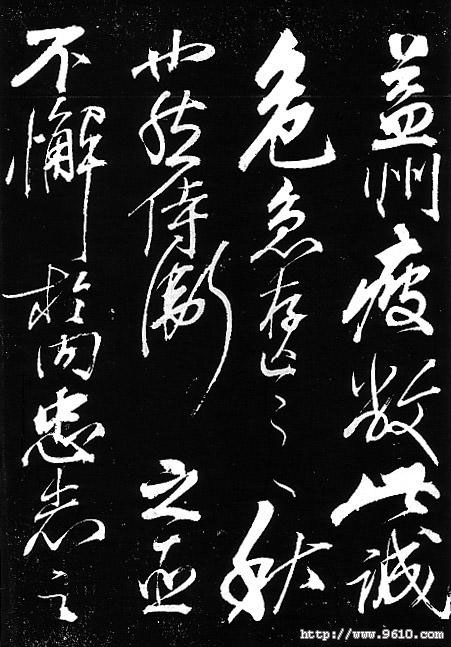 益州疲敝此誠
危急存亡之秋
也然侍衛之臣
不懈於内忠志之
http://www.9610.com